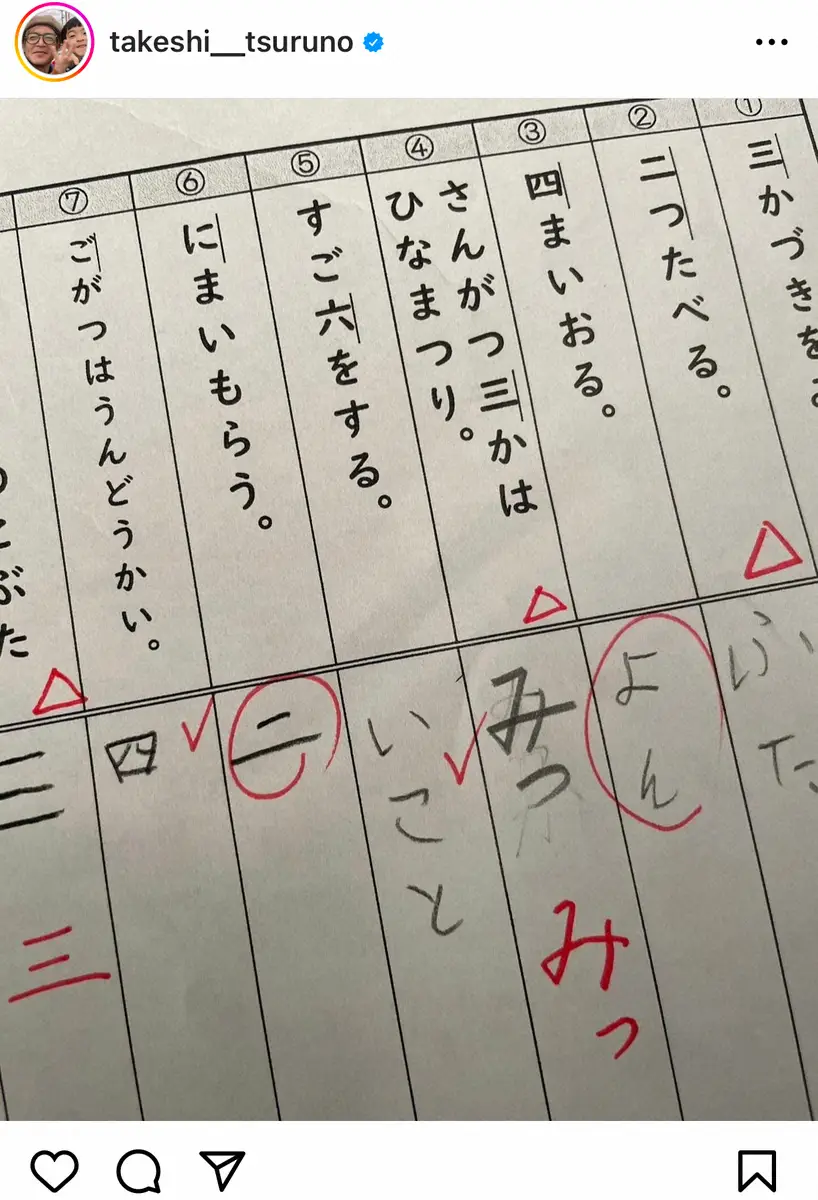 takeshi__tsuruno
①
三かづきを
②
二つたべる。
③
四まいおる。
④
さんがつ三かは
ひなまつり。
⑤
すご六をする。
⑥
にまいもらう。
⑦
ごがつはうんどうかい。
こぶた
ふた
よん
みつ
みっ
いこと
二
四
三
三